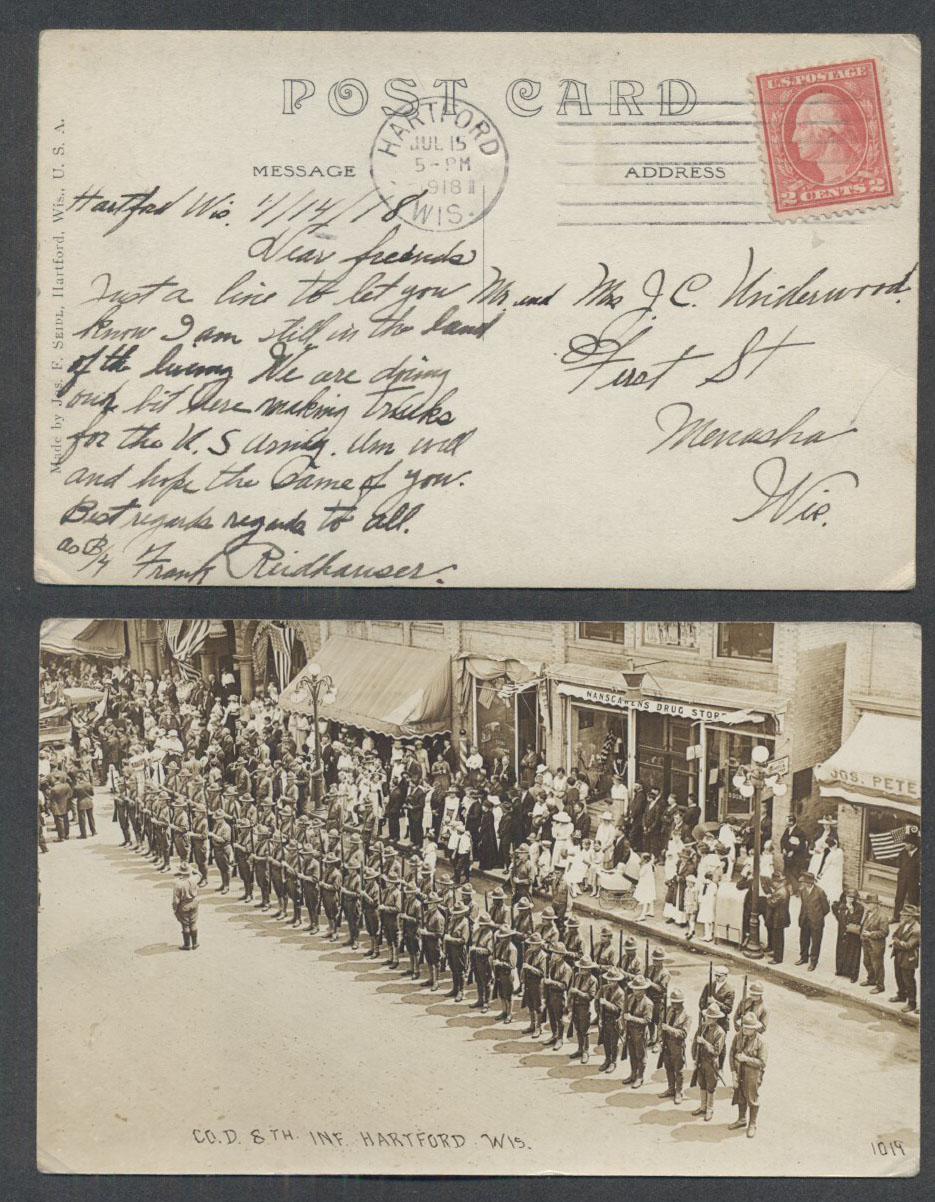 POST CARD
HARTFORD
JUL 15
5-PM
1918
WIS.
U.S. POSTAGE
2 CENTS 2
MESSAGE
ADDRESS
Made by Jos. F. SEIDL, Hartford, Wis., U. S. A.
Hartford Wis. 7/14/18
Dear friends
Just a line to let you
know I am still in the land
of the living We are doing
our bit here making trucks
for the U.S army. Am well
and hope the same of you.
Best regards regards to all.
Frank Reidhauser.
Mr. and Mrs J. C. Underwood.
First St
Menasha
Wis.
NANSCAWENS DRUG STOR
JOS. PETE
CO. D. 8TH. INF. HARTFORD. WIS.
1019